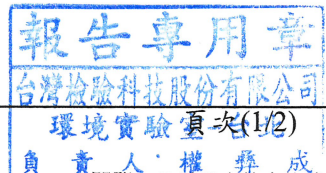 報告專用章
台灣檢驗科技股份有限公司
環境實驗室-台北
頁次(1/2)
負責人:權彝成